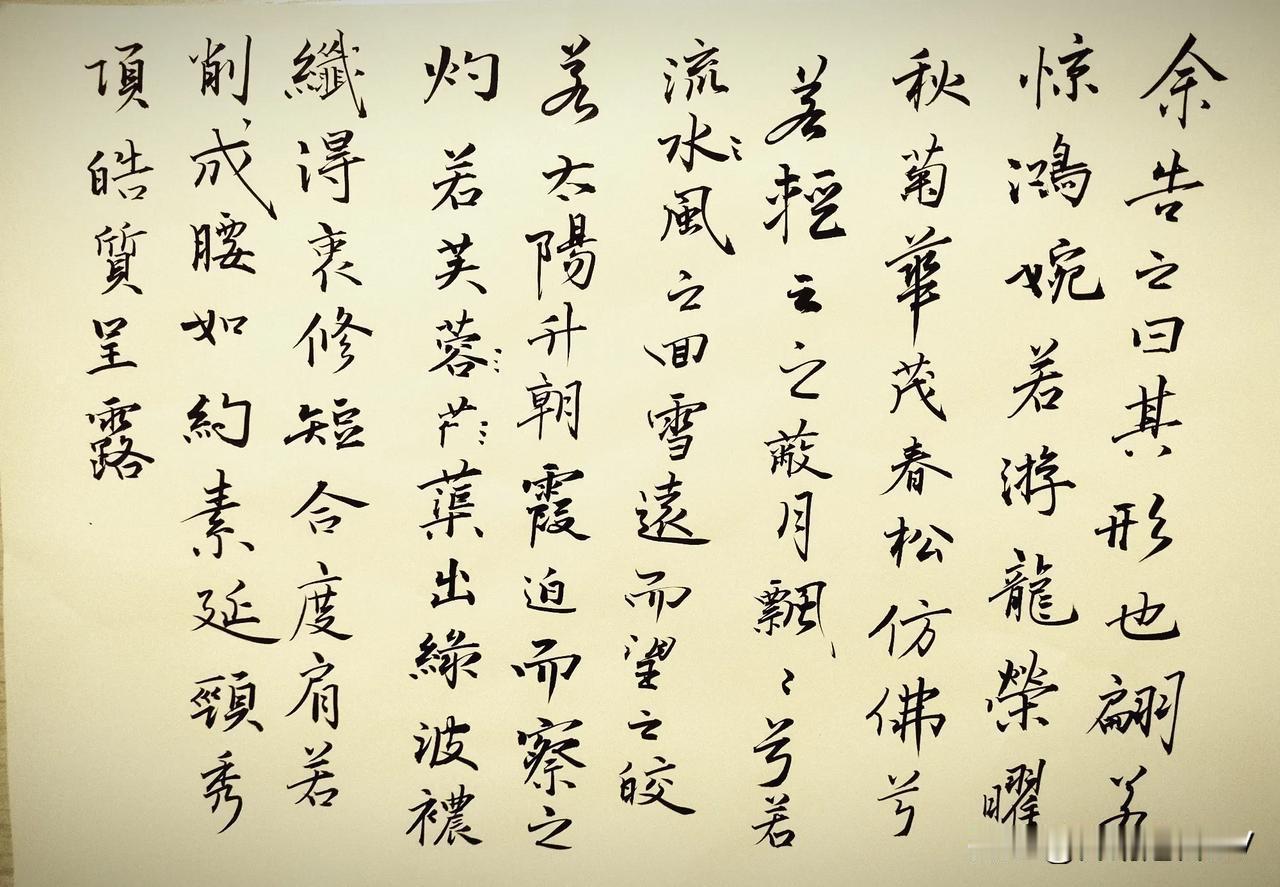 余告之曰其形也翩若
惊鴻婉若游龍榮曜
秋菊華茂春松仿佛兮
若輕云之蔽月飄〻兮若
流水風之回雪遠而望之皎
若太陽升朝霞迫而察之
灼若芙蓉芦蕖出緑波襛
纖得衷修短合度肩若
削成腰如約素延頸秀
項皓質呈露